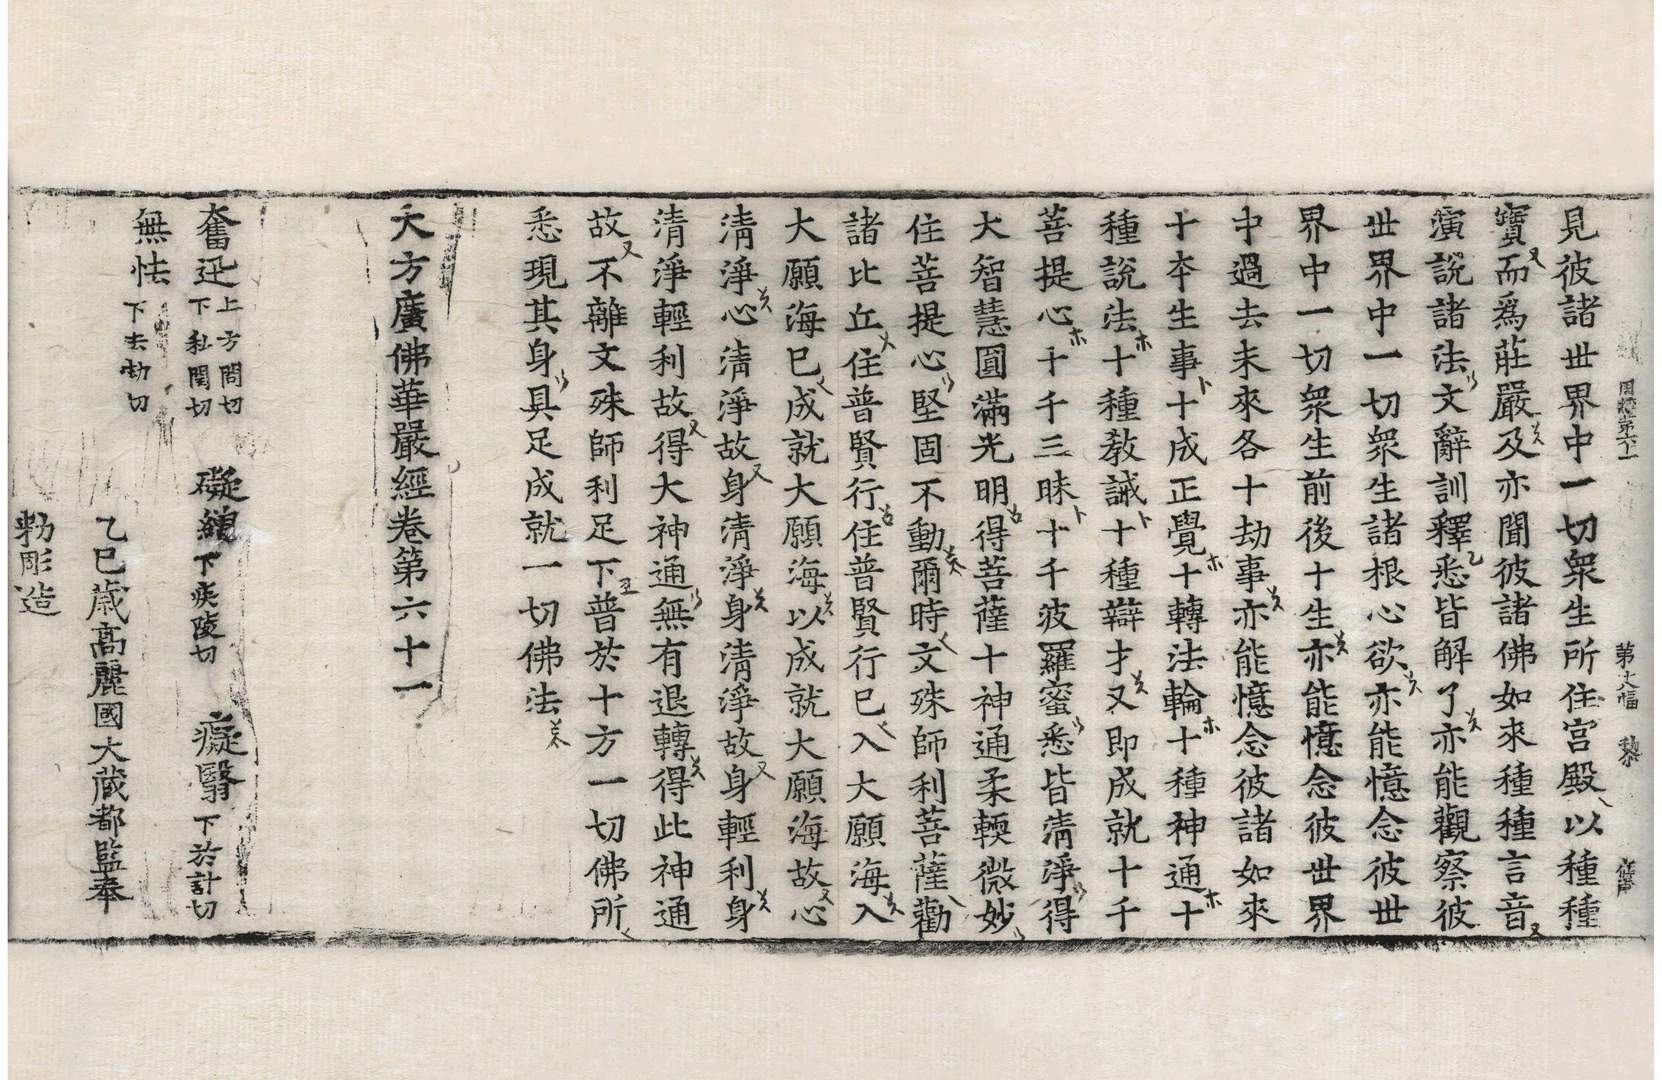 周經第六十一 第十六幅 黎
見彼諸世界中一切衆生所住宮殿以種種
寶而爲莊嚴及亦聞彼諸佛如來種種言音
演說諸法文辭訓釋悉皆解了亦能觀察彼
世界中一切衆生諸根心欲亦能憶念彼世
界中一切衆生前後十生亦能憶念彼世界
中過去未來各十劫事亦能憶念彼諸如來
十夲生事十成正覺十轉法輪十種神通十
種說法十種敎誡十種辯才又即成就十千
菩提心十千三昧十千波羅蜜悉皆清淨得
大智慧圓滿光明得菩薩十神通柔輭微妙
住菩提心堅固不動爾時文殊師利菩薩勸
諸比丘住普賢行住普賢行已入大願海入
大願海已成就大願海以成就大願海故心
清淨心清淨故身清淨身清淨故身輕利身
清淨輕利故得大神通無有退轉得此神通
故不離文殊師利足下普於十方一切佛所
悉現其身具足成就一切佛法
大方廣佛華嚴經卷第六十一
奮迅 上方問切 下私閏切 礙繒 下疾陵切 癡翳 下於計切
無怯 下去劫切
乙巳歲高麗國大藏都監奉
勅彫造